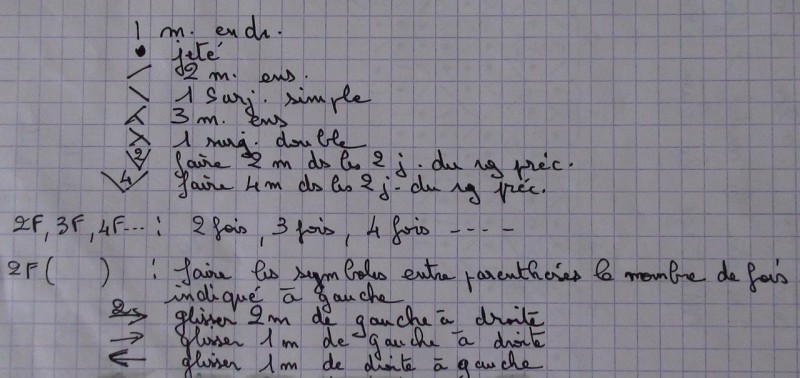 | m. endr.
• jeté
/ 2 m. ens.
\ 1 Surj. simple
3 m. ens
1 surj. double
2 faire 2 m ds les 2 j. du rg préc.
4 faire 4 m ds les 2 j. du rg préc.
2F, 3F, 4F... : 2 fois, 3 fois, 4 fois ----
2F ( ) : faire les symboles entre parenthèses le nombre de fois
indiqué à gauche
→ glisser 2 m de gauche à droite
→ glisser 1 m de gauche à droite
← glisser 1 m de droite à gauche